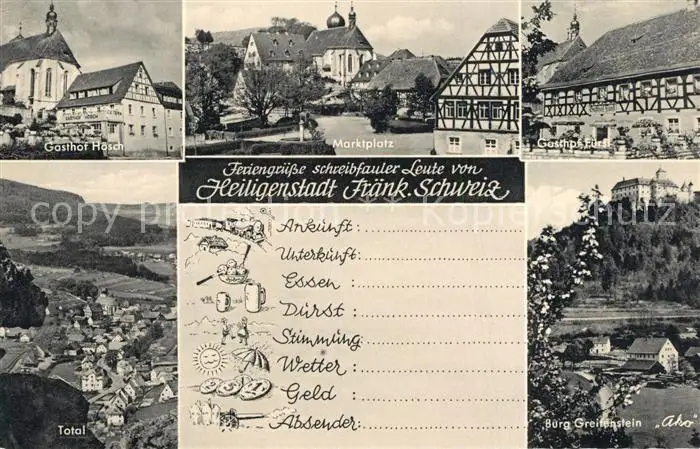 Gasthof Hösch
Marktplatz
Gasthof Fürst
Feriengrüße schreibfauler Leute von
Heiligenstadt Fränk. Schweiz
Ankunft:
Unterkunft:
Essen :
Durst :
Stimmung:
Wetter :
Geld :
Absender:
Total
Burg Greifenstein
Ako
copyschutz